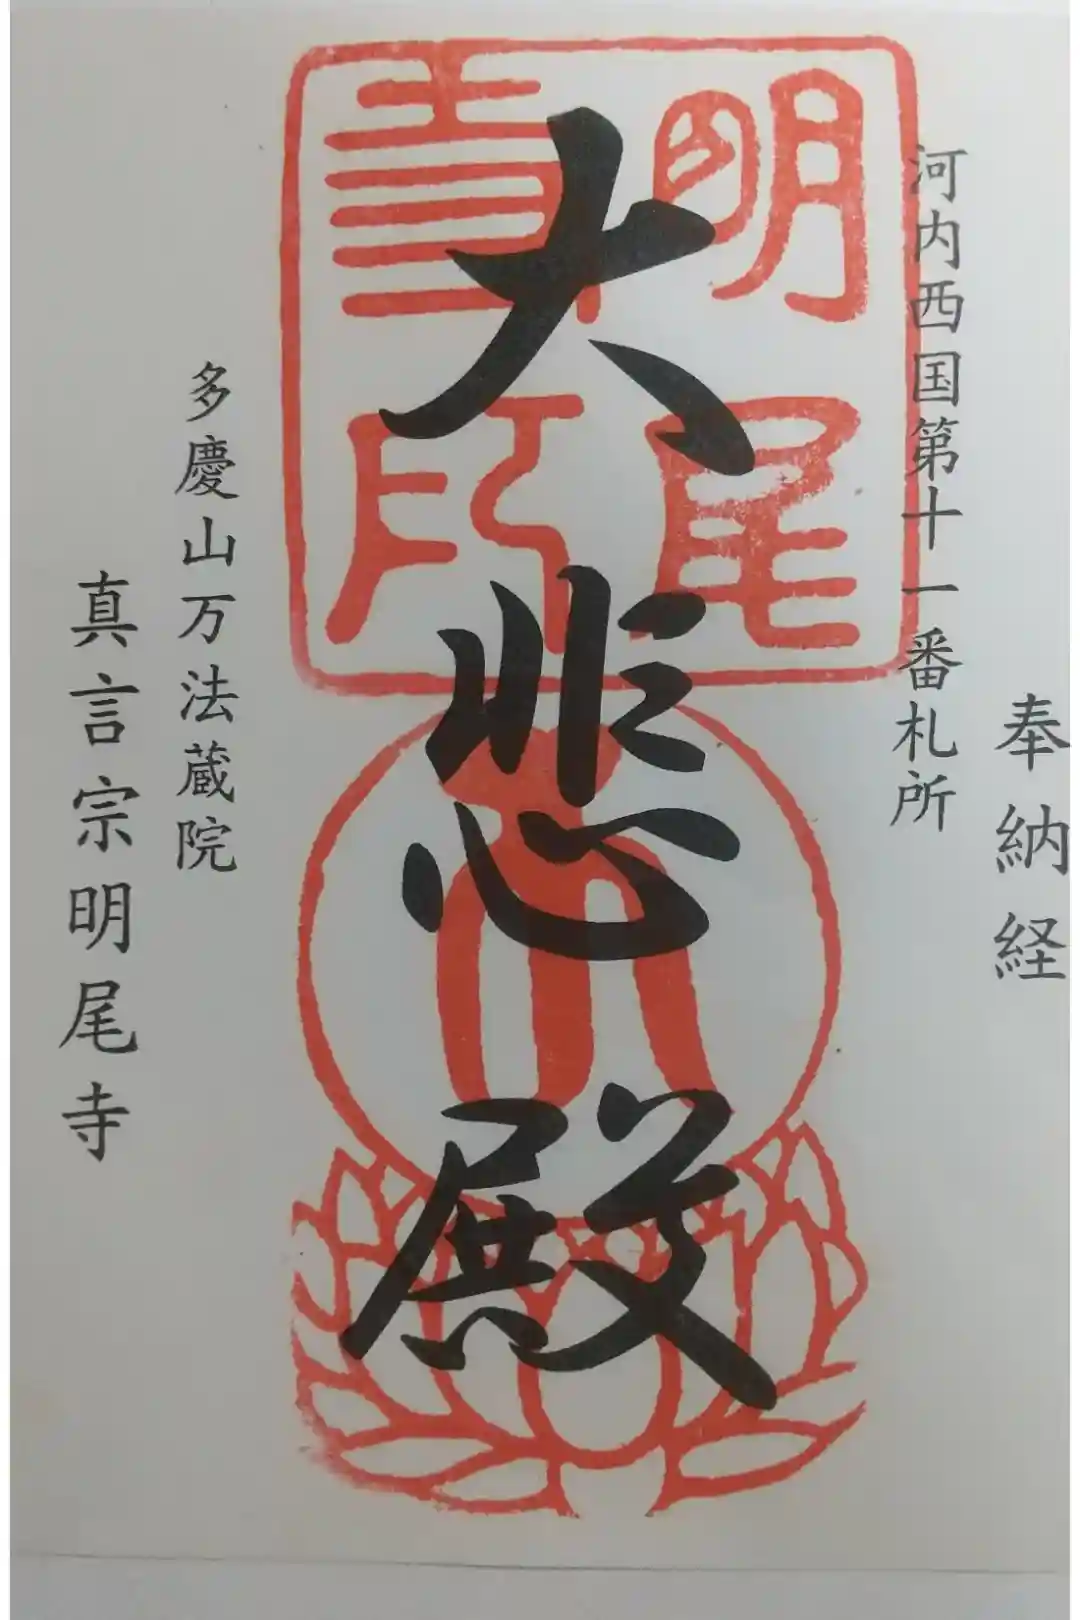 奉納経
河内西国第十一番札所
大悲殿
明尾
寺印
多慶山万法蔵院
真言宗明尾寺